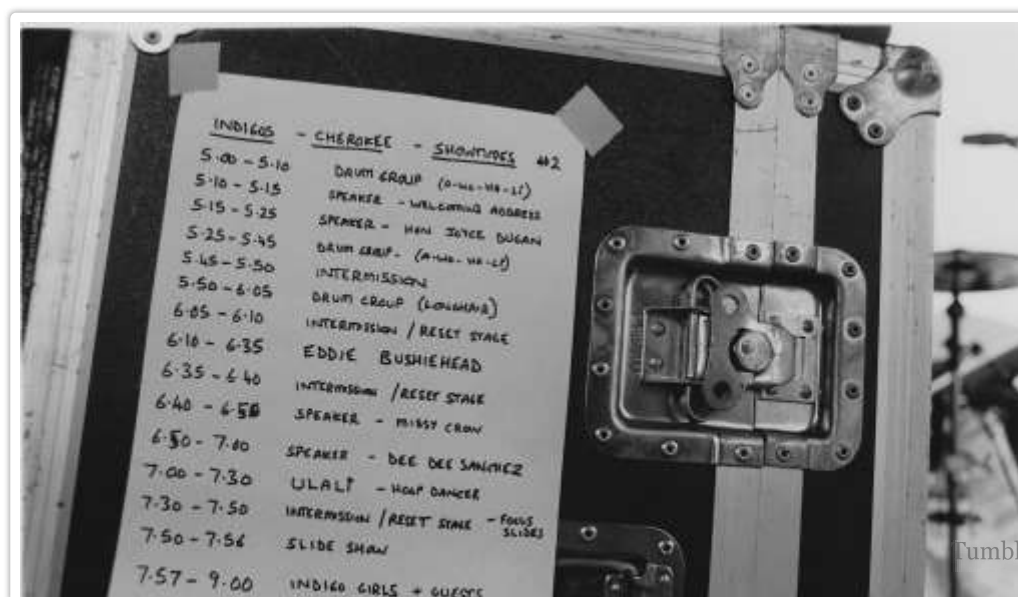 INDIGOS - CHEROKEE - SHOWTIMES #2
5.00 - 5.10 DRUM GROUP (A-WO-HA-LI)
5.10 - 5.15 SPEAKER - WELCOMING ADDRESS
5.15 - 5.25 SPEAKER - HON JOYCE DUGAN
5.25 - 5.45 DRUM GROUP - (A-WO-HA-LI)
5.45 - 5.50 INTERMISSION
5.50 - 6.05 DRUM GROUP (LONGHAIR)
6.05 - 6.10 INTERMISSION / RESET STAGE
6.10 - 6.35 EDDIE BUSHIEHEAD
6.35 - 6.40 INTERMISSION / RESET STAGE
6.40 - 6.50 SPEAKER - MISSY CROW
6.50 - 7.00 SPEAKER - DEE DEE SANCHEZ
7.00 - 7.30 ULALI - HOOP DANCER
7.30 - 7.50 INTERMISSION / RESET STAGE - FOCUS SLIDES
7.50 - 7.56 SLIDE SHOW
7.57 - 9.00 INDIGO GIRLS + GUESTS
Tumbl